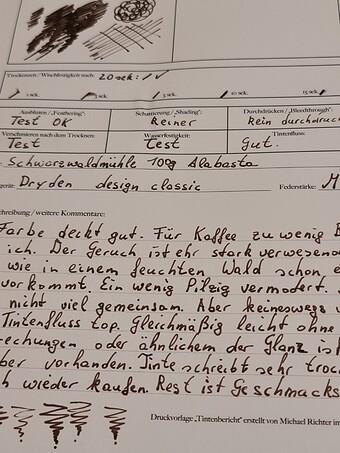 Trockenzeit / Wischfestigkeit nach: 20 sek: / ✓
1 sek. 3 sek. 5 sek. 10 sek. 15 sek.
Ausbluten / „Feathering": Schattierung / „Shading": Durchdrücken / „Bleedthrough":
Test OK Keiner Kein durchdruc
Verschmieren nach dem Trocknen: Wasserfestigkeit: Tintenfluss:
Test Test Gut.
- Schwarzwaldmühle 100g Alabasta
gerät: Dryden design classic Federstärke: M
chreibung / weitere Kommentare:
Farbe deckt gut. Für Kaffee zu wenig
ich. Der Geruch ist ehr stark verwesend
wie in einem feuchten Wald schon e
vorkommt. Ein wenig Pilzig vermodert.
nicht viel gemeinsam. Aber keineswegs
Tintenfluss top. Gleichmäßig leicht ohne
rechungen oder ähnlichem der Glanz ist
ber vorhanden. Tinte schreibt sehr troc
h wieder kaufen. Rest ist Geschmacks
Druckvorlage „Tintenbericht" erstellt von Michael Richter im